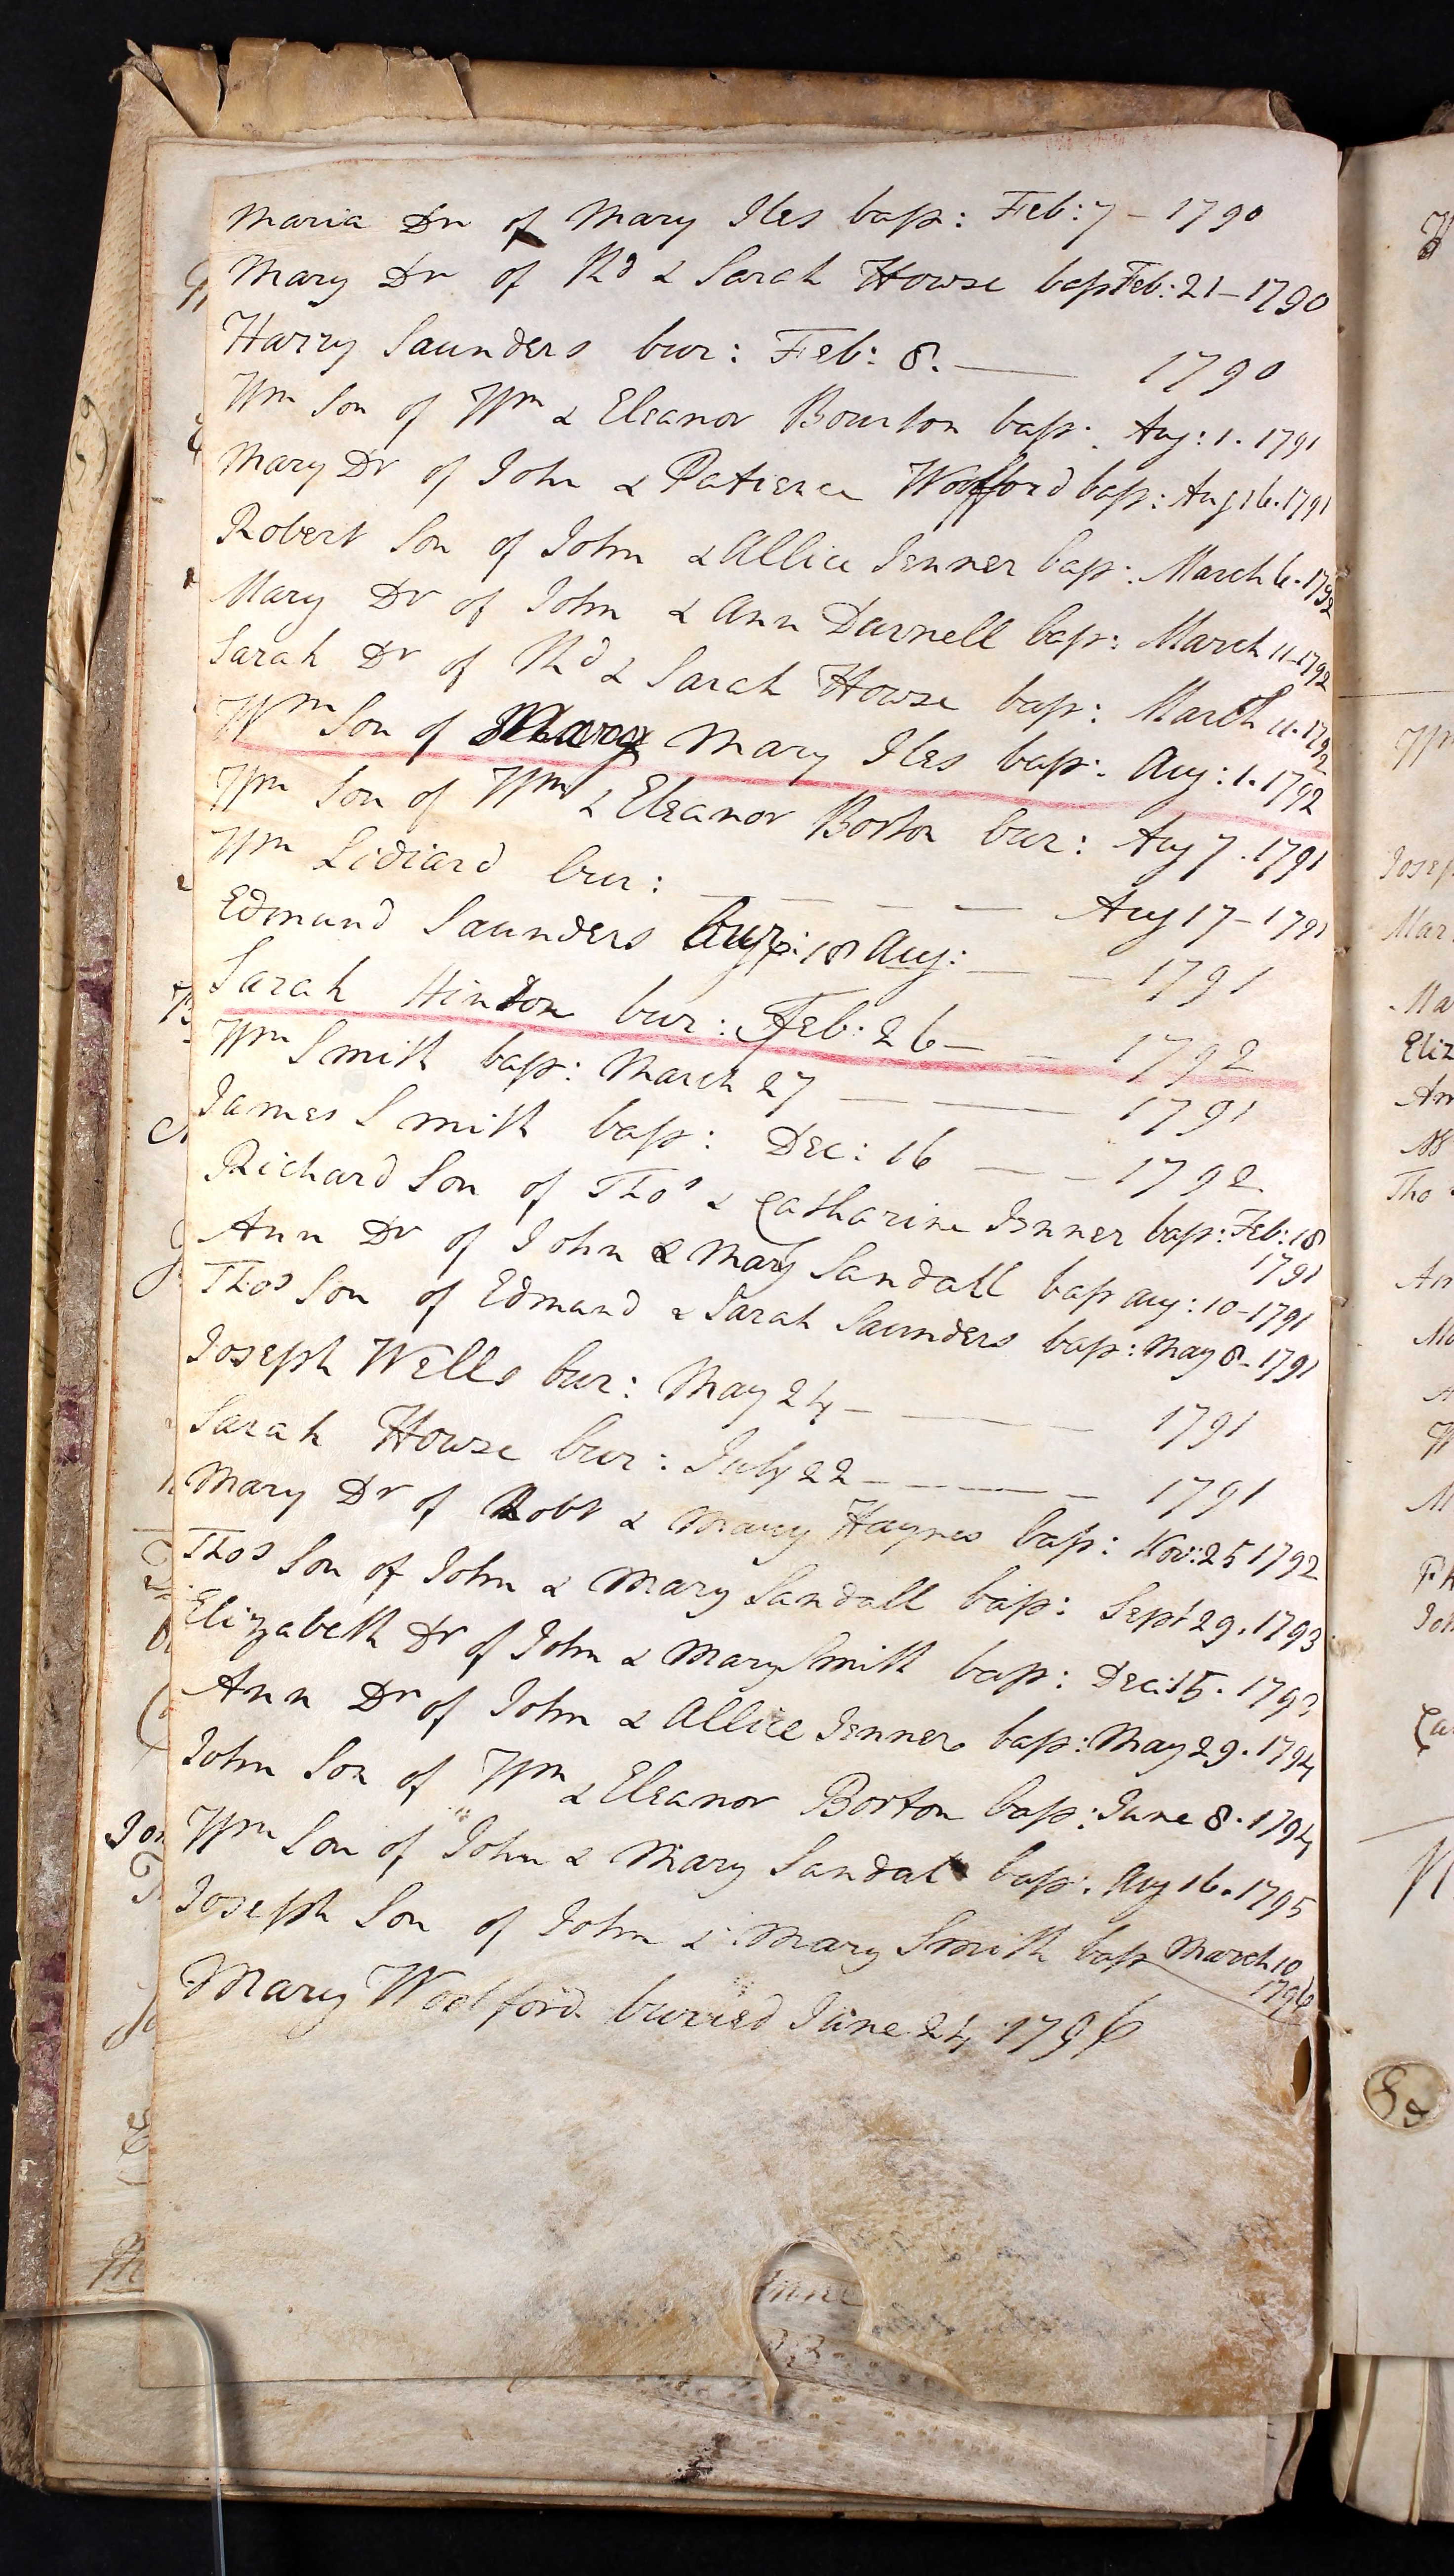 Maria Dr of Mary Iles bap: Feb: 7 - 1790
Mary Dr of Rd & Sarah Howse bap Feb: 21 - 1790
Harry Saunders bur: Feb: 8. — 1790
Wm Son of Wm & Eleanor Bourton bap: Aug: 1. 1791
Mary Dr of John & Patience Woofford bap: Aug 16. 1791
Robert Son of John & Allice Jenner bap: March 6. 1792
Mary Dr of John & Ann Darnell bap: March 11 - 1792
Sarah Dr of Rd & Sarah Howse bap: March 11. 1792
Wm Son of Mary Mary Iles bap: Aug: 1. 1792
Wm Son of Wm & Eleanor Borton bur: Aug 7. 1791
Wm Lidiard bur: — — — — Aug 17 - 1791
Edmund Saunders bur: 18 Aug: — — 1791
Sarah Hinton bur: Feb: 26 — — 1792
Wm Smith bap: March 27 — — — 1791
James Smith bap: Dec: 16 — — 1792
Richard Son of Thos & Catharine Jenner bap: Feb: 18
1791
Ann Dr of John & Mary Sandall bap Aug: 10 - 1791
Thos Son of Edmund & Sarah Saunders bap: May 8 - 1791
Joseph Wells bur: May 24 — — — 1791
Sarah Howse bur: July 22 — — — — 1791
Mary Dr of Robt & Mary Haynes bap: Nov: 25 1792
Thos Son of John & Mary Sandall bap: Sept 29. 1793
Elizabeth Dr of John & Mary Smith bap: Dec: 15. 1793
Ann Dr of John & Allice Jenner bap: May 29. 1794
John Son of Wm & Eleanor Borton bap: June 8. 1794
Wm Son of John & Mary Sandal bap. Aug 16. 1795
Joseph Son of John & Mary Smith bap March 10
1796
Mary Woolford buried June 24 1796